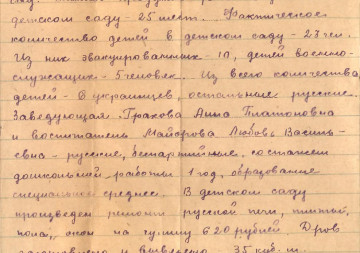 детском саду - 25 мест. Фактическое
количество детей в детском саду - 23 чел.
Из них эвакуированных - 10, детей военно-
служащих - 5 человек. Из всего количества
детей - 6 украинцев, остальные русские.
Заведующая Грахова Анна Платоновна
и воспитатель Майорова Любовь Василь-
евна - русские, беспартийные, со стажем
дошкольной работы 1 год, образование
специальное среднее. В детском саду
произведен ремонт русской печи,
пола, окон на сумму 620 рублей. Дров
заготовлено и вывезено 35 куб. м.